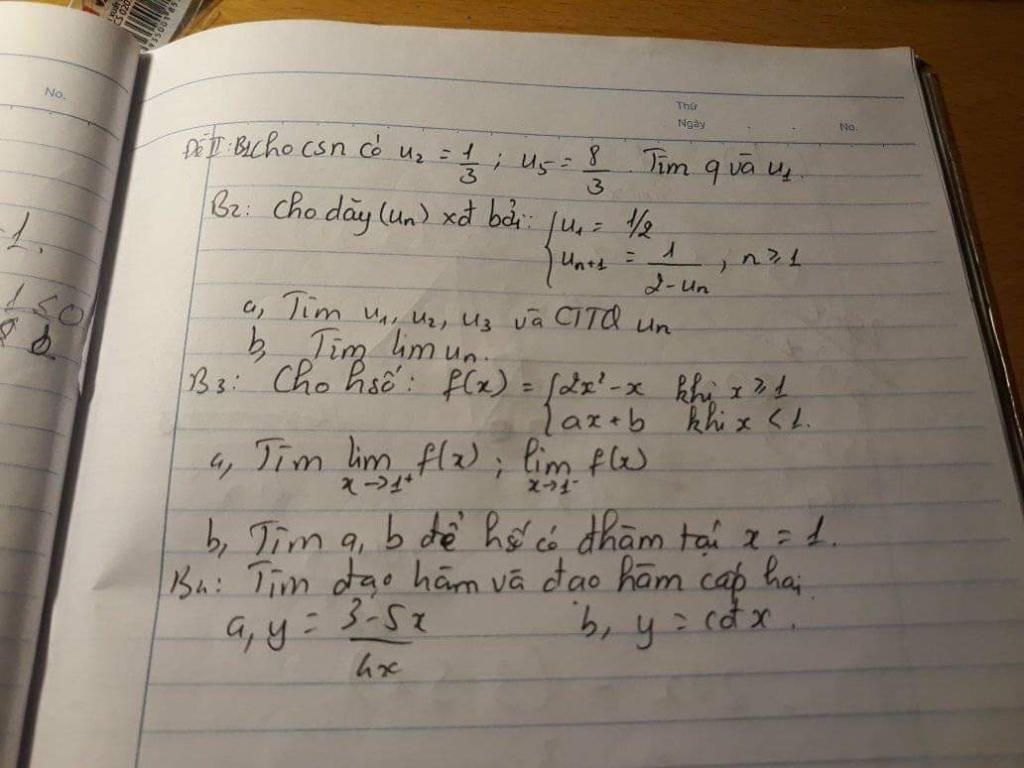 No.
Thứ
Ngày . . No.
Đề II: B1 Cho csn có u₂ = 1/3 ; u₅ = 8/3 . Tìm q và u₁.
B2: Cho dãy (uₙ) xđ bởi: { u₁ = 1/2
uₙ₊₁ = 1/(2-uₙ) , n ≥ 1
a, Tìm u₁, u₂, u₃ và CTTQ uₙ
b, Tìm lim uₙ.
B3: Cho hsố: f(x) = { 2x² - x khi x ≥ 1
ax + b khi x < 1.
a, Tìm lim x→1⁺ f(x) ; lim x→1⁻ f(x)
b, Tìm a, b để hsố có đhàm tại x = 1.
B4: Tìm đạo hàm và đạo hàm cấp hai
a, y = (3-5x)/4x b, y = cđ x .